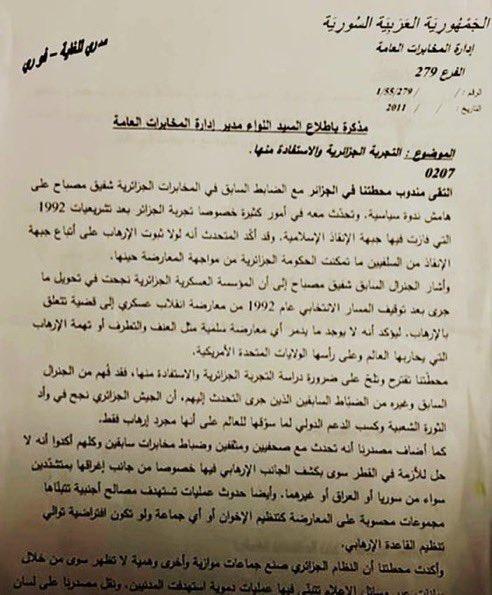 الجمهورية العربية السورية
إدارة المخابرات العامة
الفرع 279
سري للغاية – فوري
الرقم: / / 1/55/279
التاريخ: / / 2011
مذكرة باطلاع السيد اللواء مدير إدارة المخابرات العامة
الموضوع: التجربة الجزائرية والاستفادة منها.
0207
التقى مندوب محطتنا في الجزائر مع الضابط السابق في المخابرات الجزائرية شفيق مصباح على
هامش ندوة سياسية. وتحدث معه في أمور كثيرة خصوصا تجربة الجزائر بعد تشريعيات 1992
التي فازت فيها جبهة الإنقاذ الإسلامية. وقد أكد المتحدث أنه لولا ثبوت الإرهاب على أتباع جبهة
الإنقاذ من السلفيين ما تمكنت الحكومة الجزائرية من مواجهة المعارضة حينها.
وأشار الجنرال السابق شفيق مصباح إلى أن المؤسسة العسكرية الجزائرية نجحت في تحويل ما
جرى بعد توقيف المسار الانتخابي عام 1992 من معارضة انقلاب عسكري إلى قضية تتعلق
بالإرهاب. ليؤكد أنه لا يوجد ما يدمر أي معارضة سلمية مثل العنف والتطرف أو تهمة الإرهاب
التي يحاربها العالم وعلى رأسها الولايات المتحدة الأمريكية.
محطتنا تقترح وتلح على ضرورة دراسة التجربة الجزائرية والاستفادة منها، فقد فهم من الجنرال
السابق وغيره من الضباط السابقين الذين جرى التحدث إليهم، أن الجيش الجزائري نجح في وأد
الثورة الشعبية وكسب الدعم الدولي لما سوّقها للعالم على أنها مجرد إرهاب فقط.
كما أضاف مصدرنا أنه تحدث مع صحفيين ومثقفين وضباط مخابرات سابقين وكلهم أكدوا أنه لا
حل للأزمة في القطر سوى بكشف الجانب الإرهابي فيها خصوصا من جانب إغراقها بمتشددين
سواء من سوريا أو العراق أو غيرهما. وأيضا حدوث عمليات تستهدف مصالح أجنبية تتبناها
مجموعات محسوبة على المعارضة كتنظيم الإخوان أو أي جماعة ولو تكون افتراضية توالي
تنظيم القاعدة الإرهابي.
وأكدت محطتنا أن النظام الجزائري صنع جماعات موازية وأخرى وهمية لا تظهر سوى من خلال
بيانات عبر وسائل الإعلام تتبنى فيها عمليات دموية استهدفت المدنيين. ونقل مصدرنا على لسان